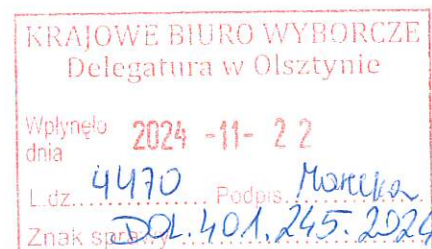 KRAJOWE BIURO WYBORCZE
Delegatura w Olsztynie
Wpłynęło dnia 2024 -11- 22
L.dz. 4470 Podpis
Znak sprawy DOL.401.245.2024